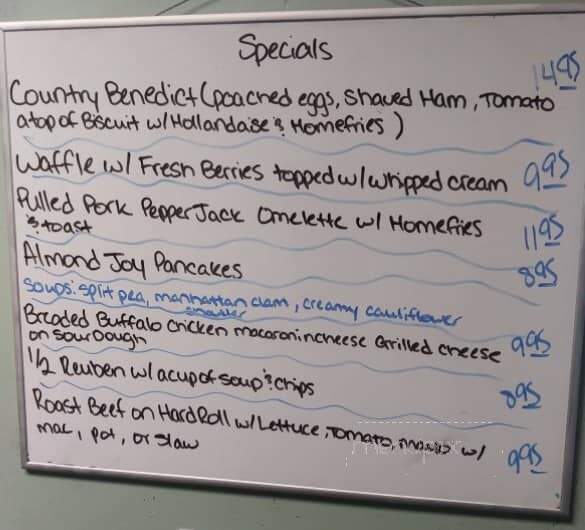 Specials
Country Benedict (poached eggs, Shaved Ham, Tomato 14 95
atop of Biscuit w/Hollandaise & Homefries)
Waffle w/ Fresh Berries topped w/ whipped cream 9 95
Pulled Pork PepperJack Omelette w/ Homefries 11 95
& toast
Almond Joy Pancakes 8 95
Soups: split pea, manhattan clam, creamy cauliflower
chowder
Breaded Buffalo Chicken macaronincheese Grilled cheese 9 95
on SourDough
1/2 Reuben w/ a cup of soup & chips 8 95
Roast Beef on Hard Roll w/ Lettuce, Tomato, mayo w/
mac, pot, or slaw 9 95